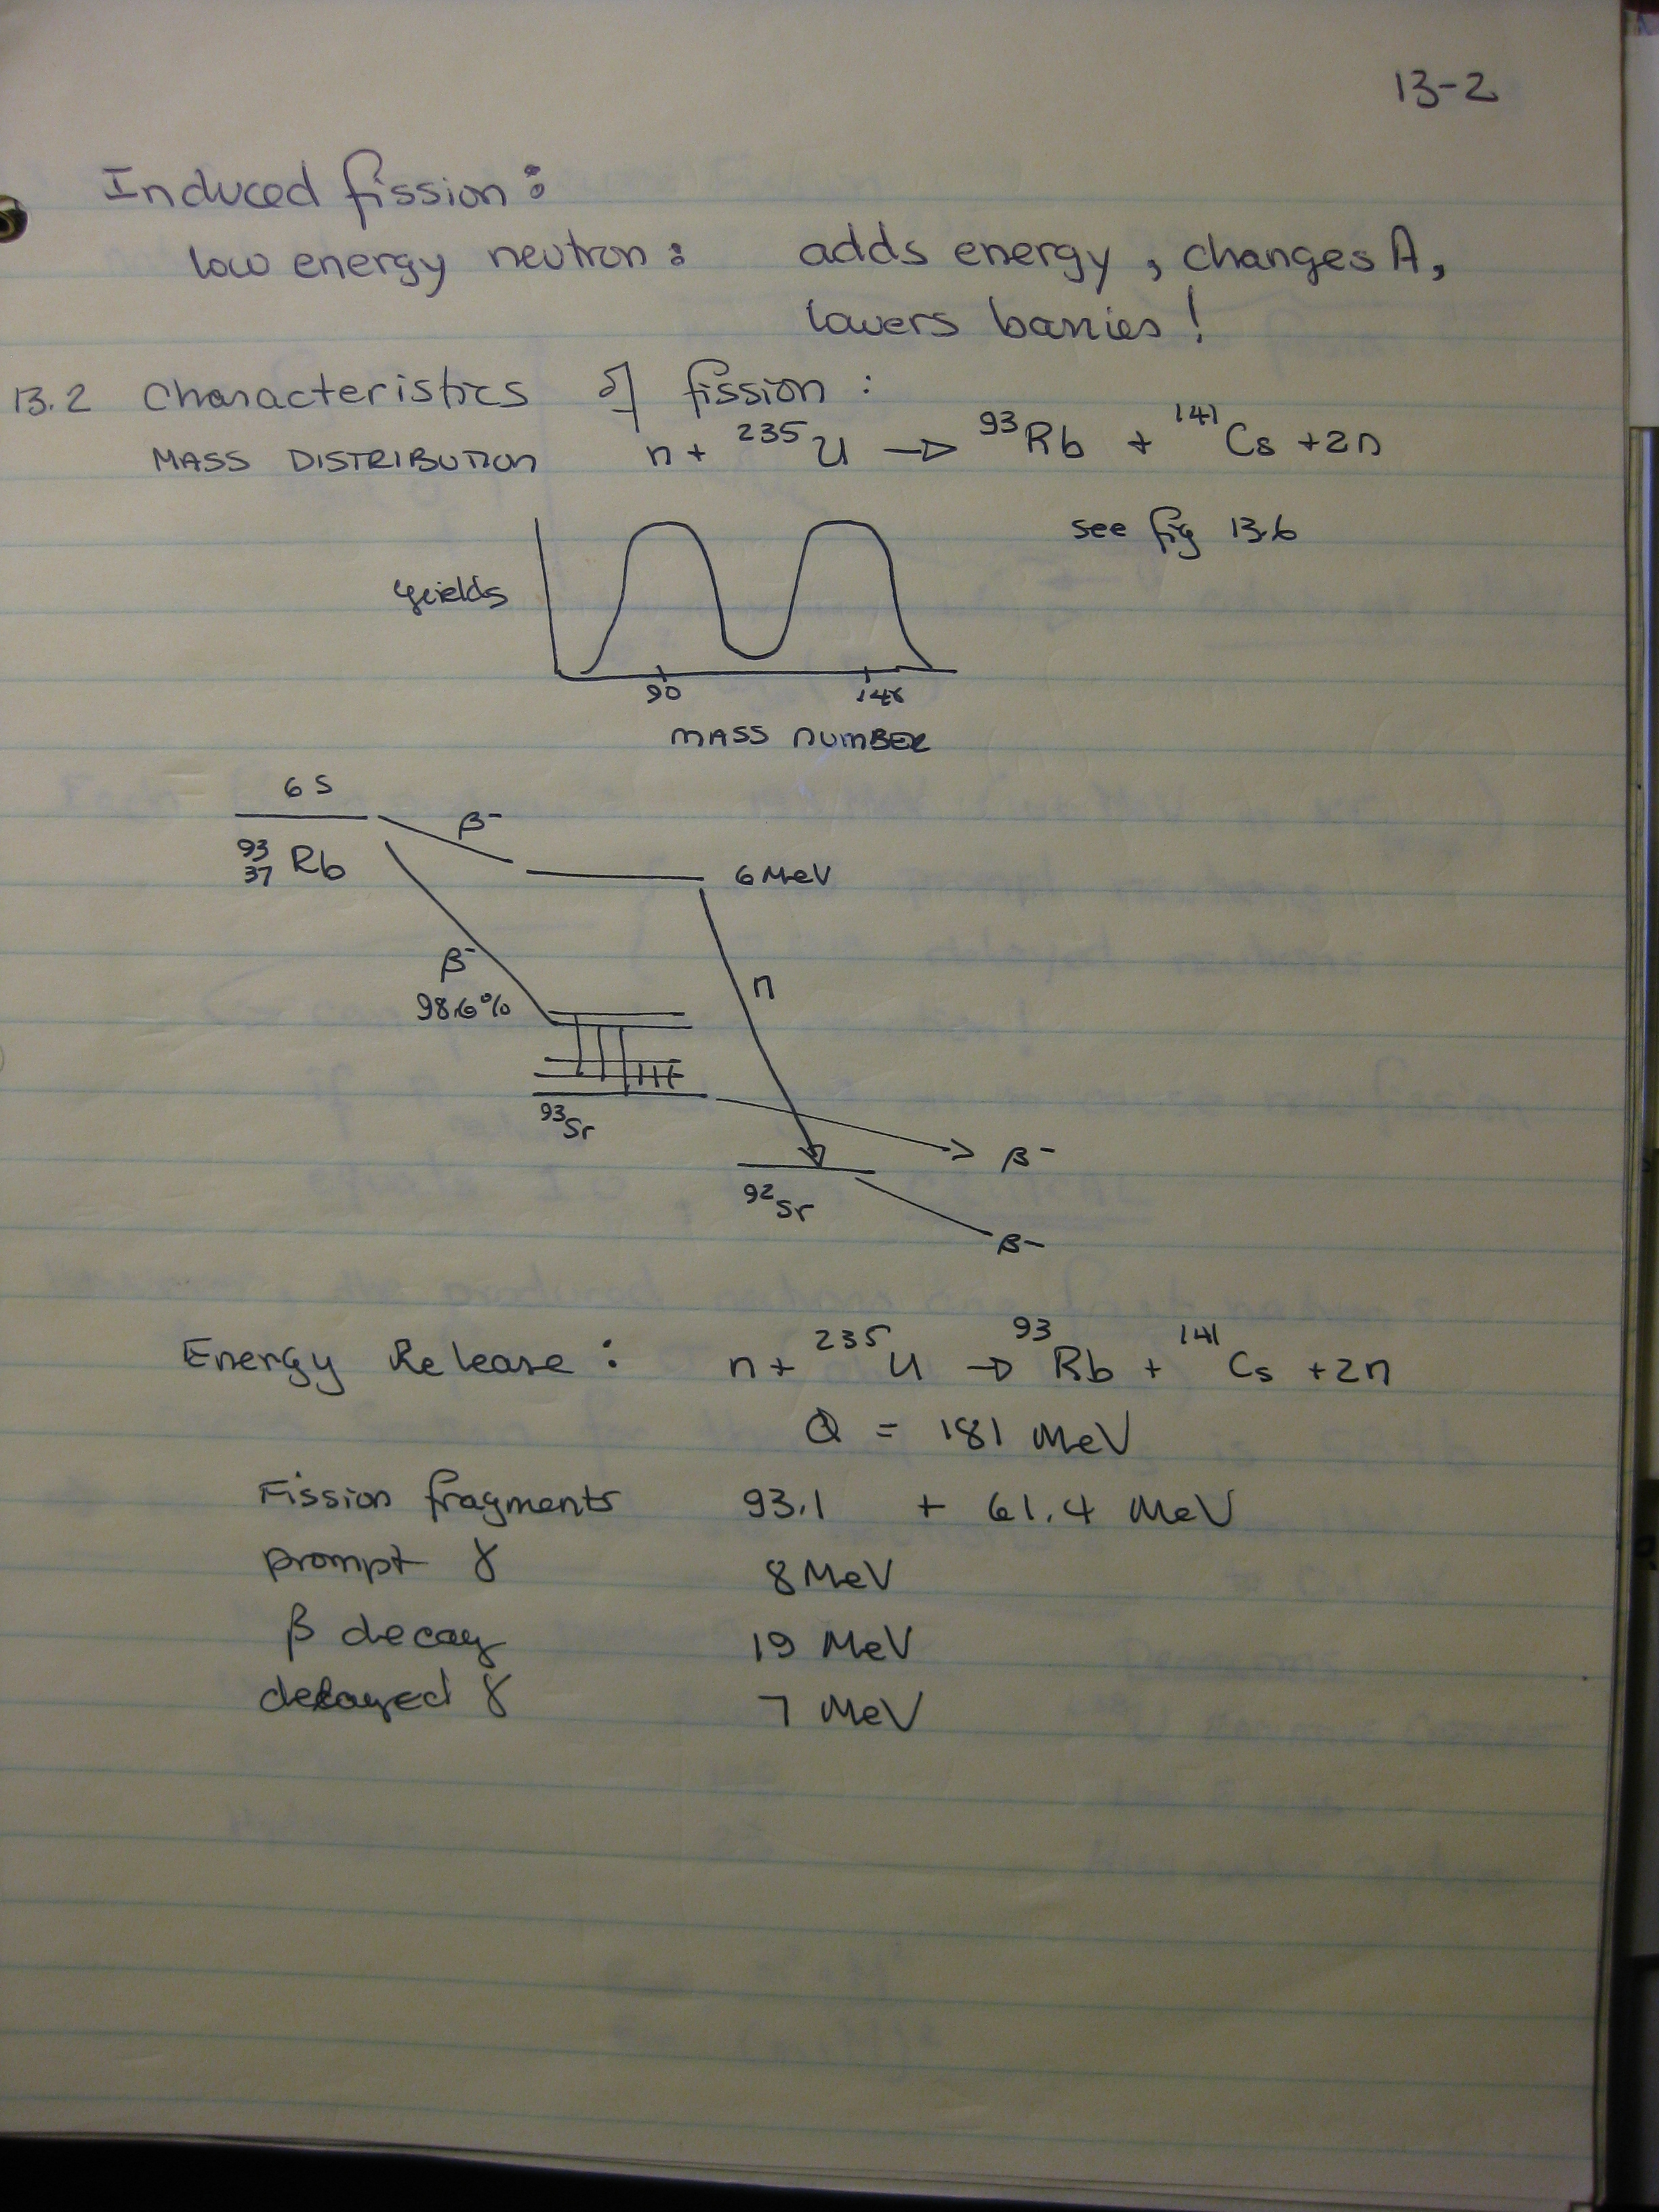 13-2
Induced fission:
low energy neutron: adds energy, changes A,
lowers barries!
13.2 Characteristics of fission:
MASS DISTRIBUTION n + ²³⁵U → ⁹³Rb + ¹⁴¹Cs + 2n
see fig 13.6
yields
90 140
MASS NUMBER
6 S
β⁻
⁹³₃₇Rb
6 MeV
β⁻
n
98.6%
⁹³Sr
β⁻
⁹²Sr
β⁻
Energy Release: n + ²³⁵U → ⁹³Rb + ¹⁴¹Cs + 2n
Q = 181 MeV
Fission fragments 93.1 + 61.4 MeV
prompt γ 8 MeV
β decay 19 MeV
delayed γ 7 MeV